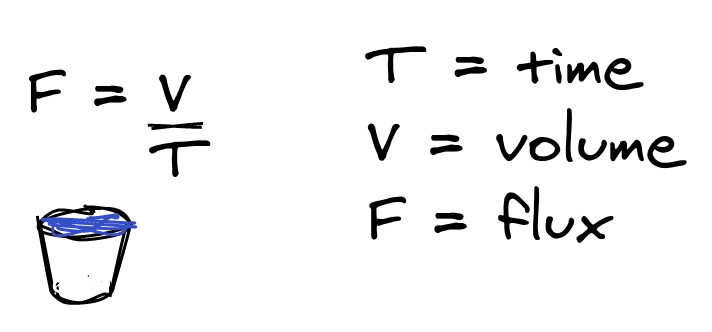 F = V
T
T = time
V = volume
F = flux